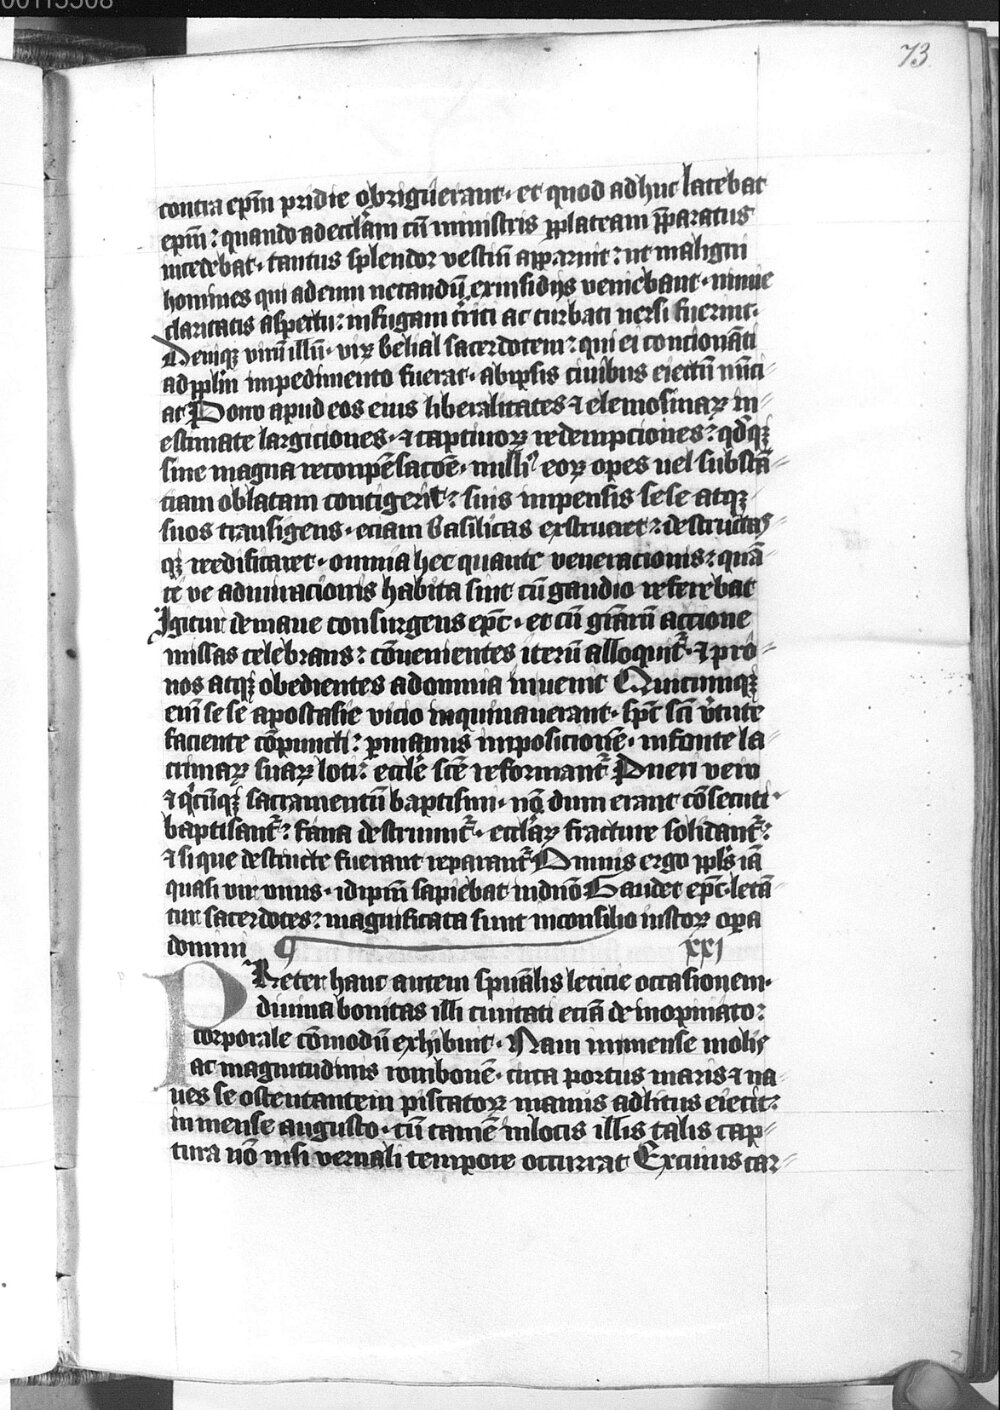 00115308
73
contra ep̄m pridie obriguerant· et quod adhuc latebat
ep̄m: quando ad eccl̄am cū ministris ꝑ plateam p̄paratus
incedebat· tantus splendor vestiū apparuit: ut maligni
homines qui ad eum necandū ex insidijs veniebant· nimie
claritatis aspectu: in fugam cōuersi ac turbati uersi fuerint·
Deniqꝫ virū illū· vir belial sacerdotem: qui ei concionāti
ad ppl̄m impedimento fuerat· ab ipsis ciuibus eiectū nūci⸗
at Porro apud eos eius liberalitates ⁊ elemosinaꝝ in⸗
estimate largiciones· ⁊ captiuoꝝ redempciones: qd̄qꝫ
sine magna recōpēsacōe· nulli᷒ eoꝝ opes uel substā⸗
ciam oblatam contigerit: suis impensis sese atqꝫ
suos transigens· eciam basilicas exstrueret: destructas⸗
qꝫ reedificaret· omnia hec quante veneracionis: quā⸗
te ve admiracionis habita sint cū gaudio referebat
Igitur de mane consurgens ep̄c· et cū gr̄arū accione
missas celebrans: cōuenientes iterū alloquit᷑· ⁊ pro⸗
nos atqꝫ obedientes ad omnia inuenit Quicumqꝫ
eni᷒ sese apostasie vicio inquinauerant· sp̄c sc̄i v̄tute
faciente cōpuncti: ꝑ manus imposicionē· in fonte la⸗
crimaꝝ suaꝝ loti: eccl̄e sc̄e reformant᷑ Pueri vero
⁊ q̄cūqꝫ sacramentū baptismi· nō dum erant cōsecuti·
baptisant᷑: fana destruunt᷑· eccl̄aꝝ fracture solidant᷑:
⁊ si que destructe fuerant reparant᷑ Omnis ergo ppl̄s iā
quasi vir vnus· id ip̄m sapiebat in dn̄o Gaudet ep̄c· letā⸗
tur sacerdotes: magnificata sunt in consilio iustoꝝ oꝑa
domini XXI
PReter hanc autem spūalis leticie occasionem·
diuina bonitas illi ciuitati eciā de inopinato:
corporale cōmodū exhibuit· Nam immense molis
ac magnitudinis rombonē· circa portus maris ⁊ na⸗
ues se ostentantem piscatoꝝ manus ad litus eiecit:
in mense augusto· cū tamē in locis illis talis cap⸗
tura nō nisi vernali tempore occurrat Ex cuius car⸗